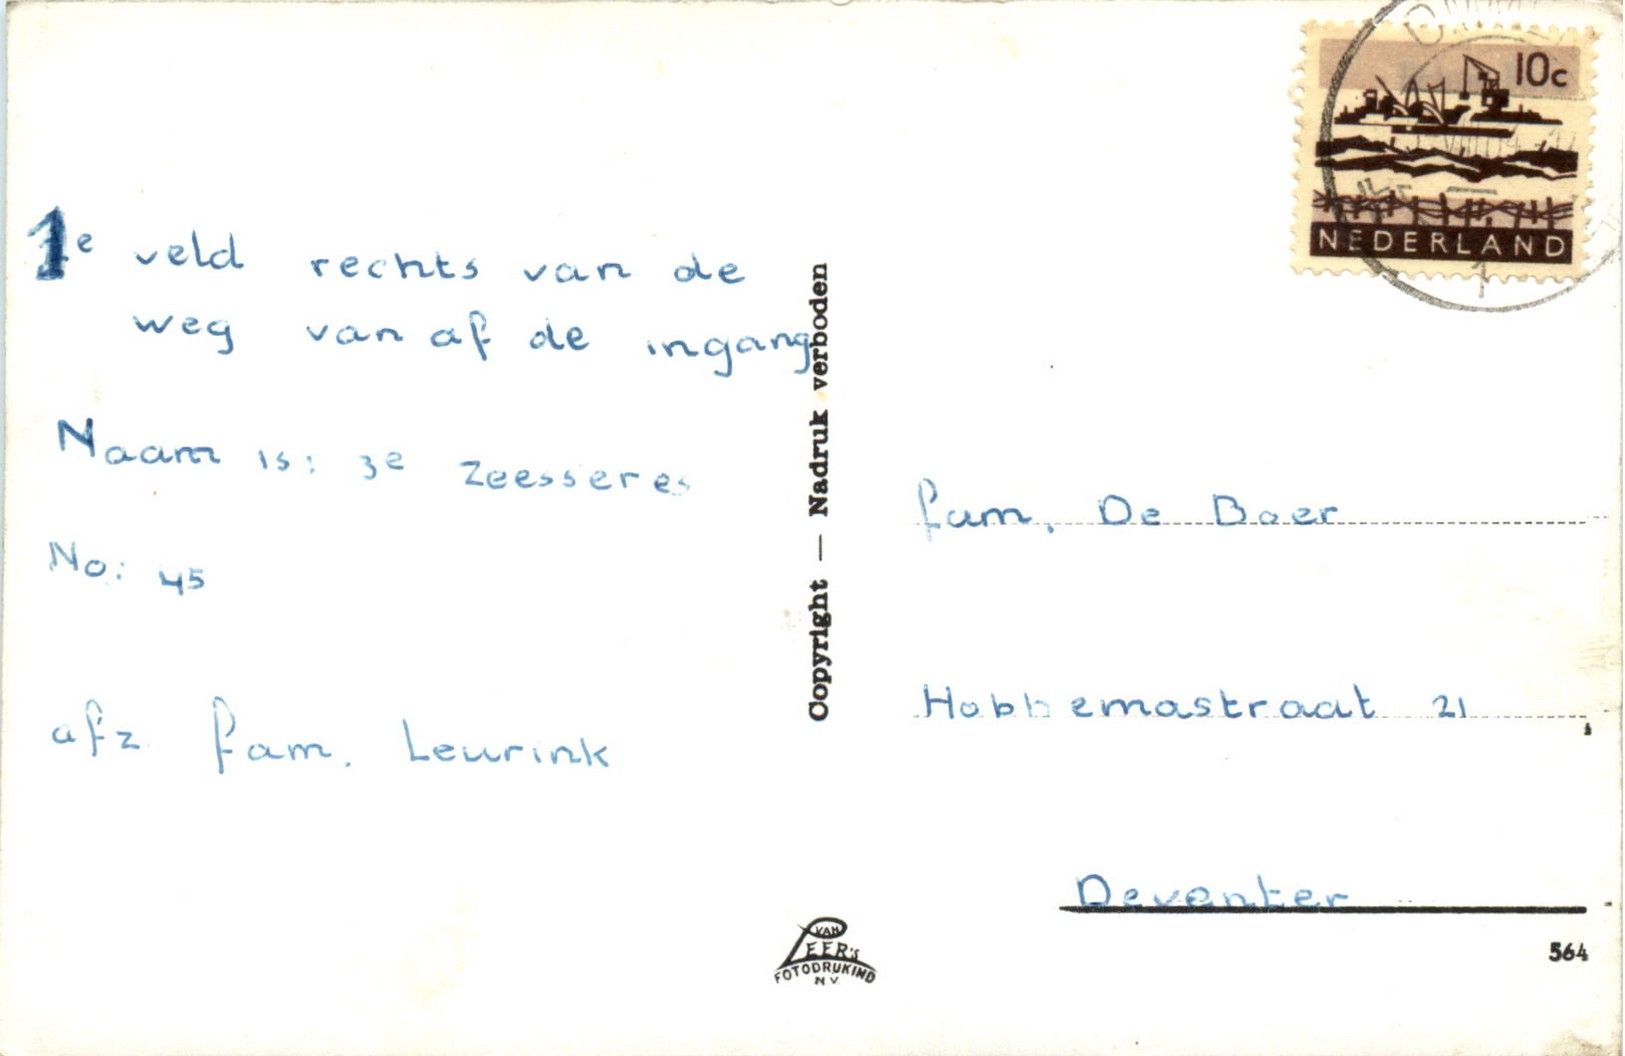 1e veld rechts van de
weg van af de ingang
Naam is: 3e Zeesseres
No: 45
afz fam. Leurink
Copyright — Nadruk verboden
VAN
LEER'S
FOTODRUKIND
N.V.
10c
NEDERLAND
1
fam. De Boer
Hobbemastraat 21
Deventer
564